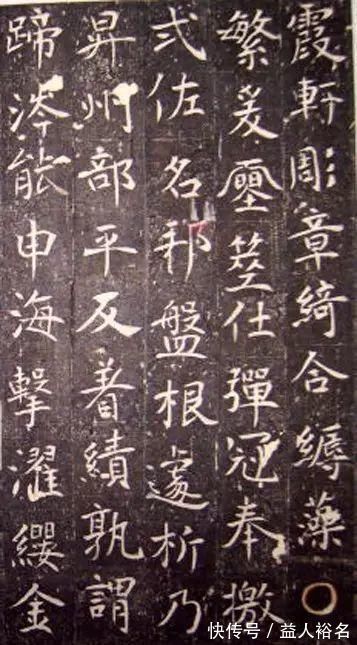 霞軒彫章綺合縟藻〇
繁爰筮仕彈冠奉檄
弍佐名邦盤根遽析乃
昇州部平反著績孰謂
蹄涔能申海擊濯纓金
快传号 / 益人裕名